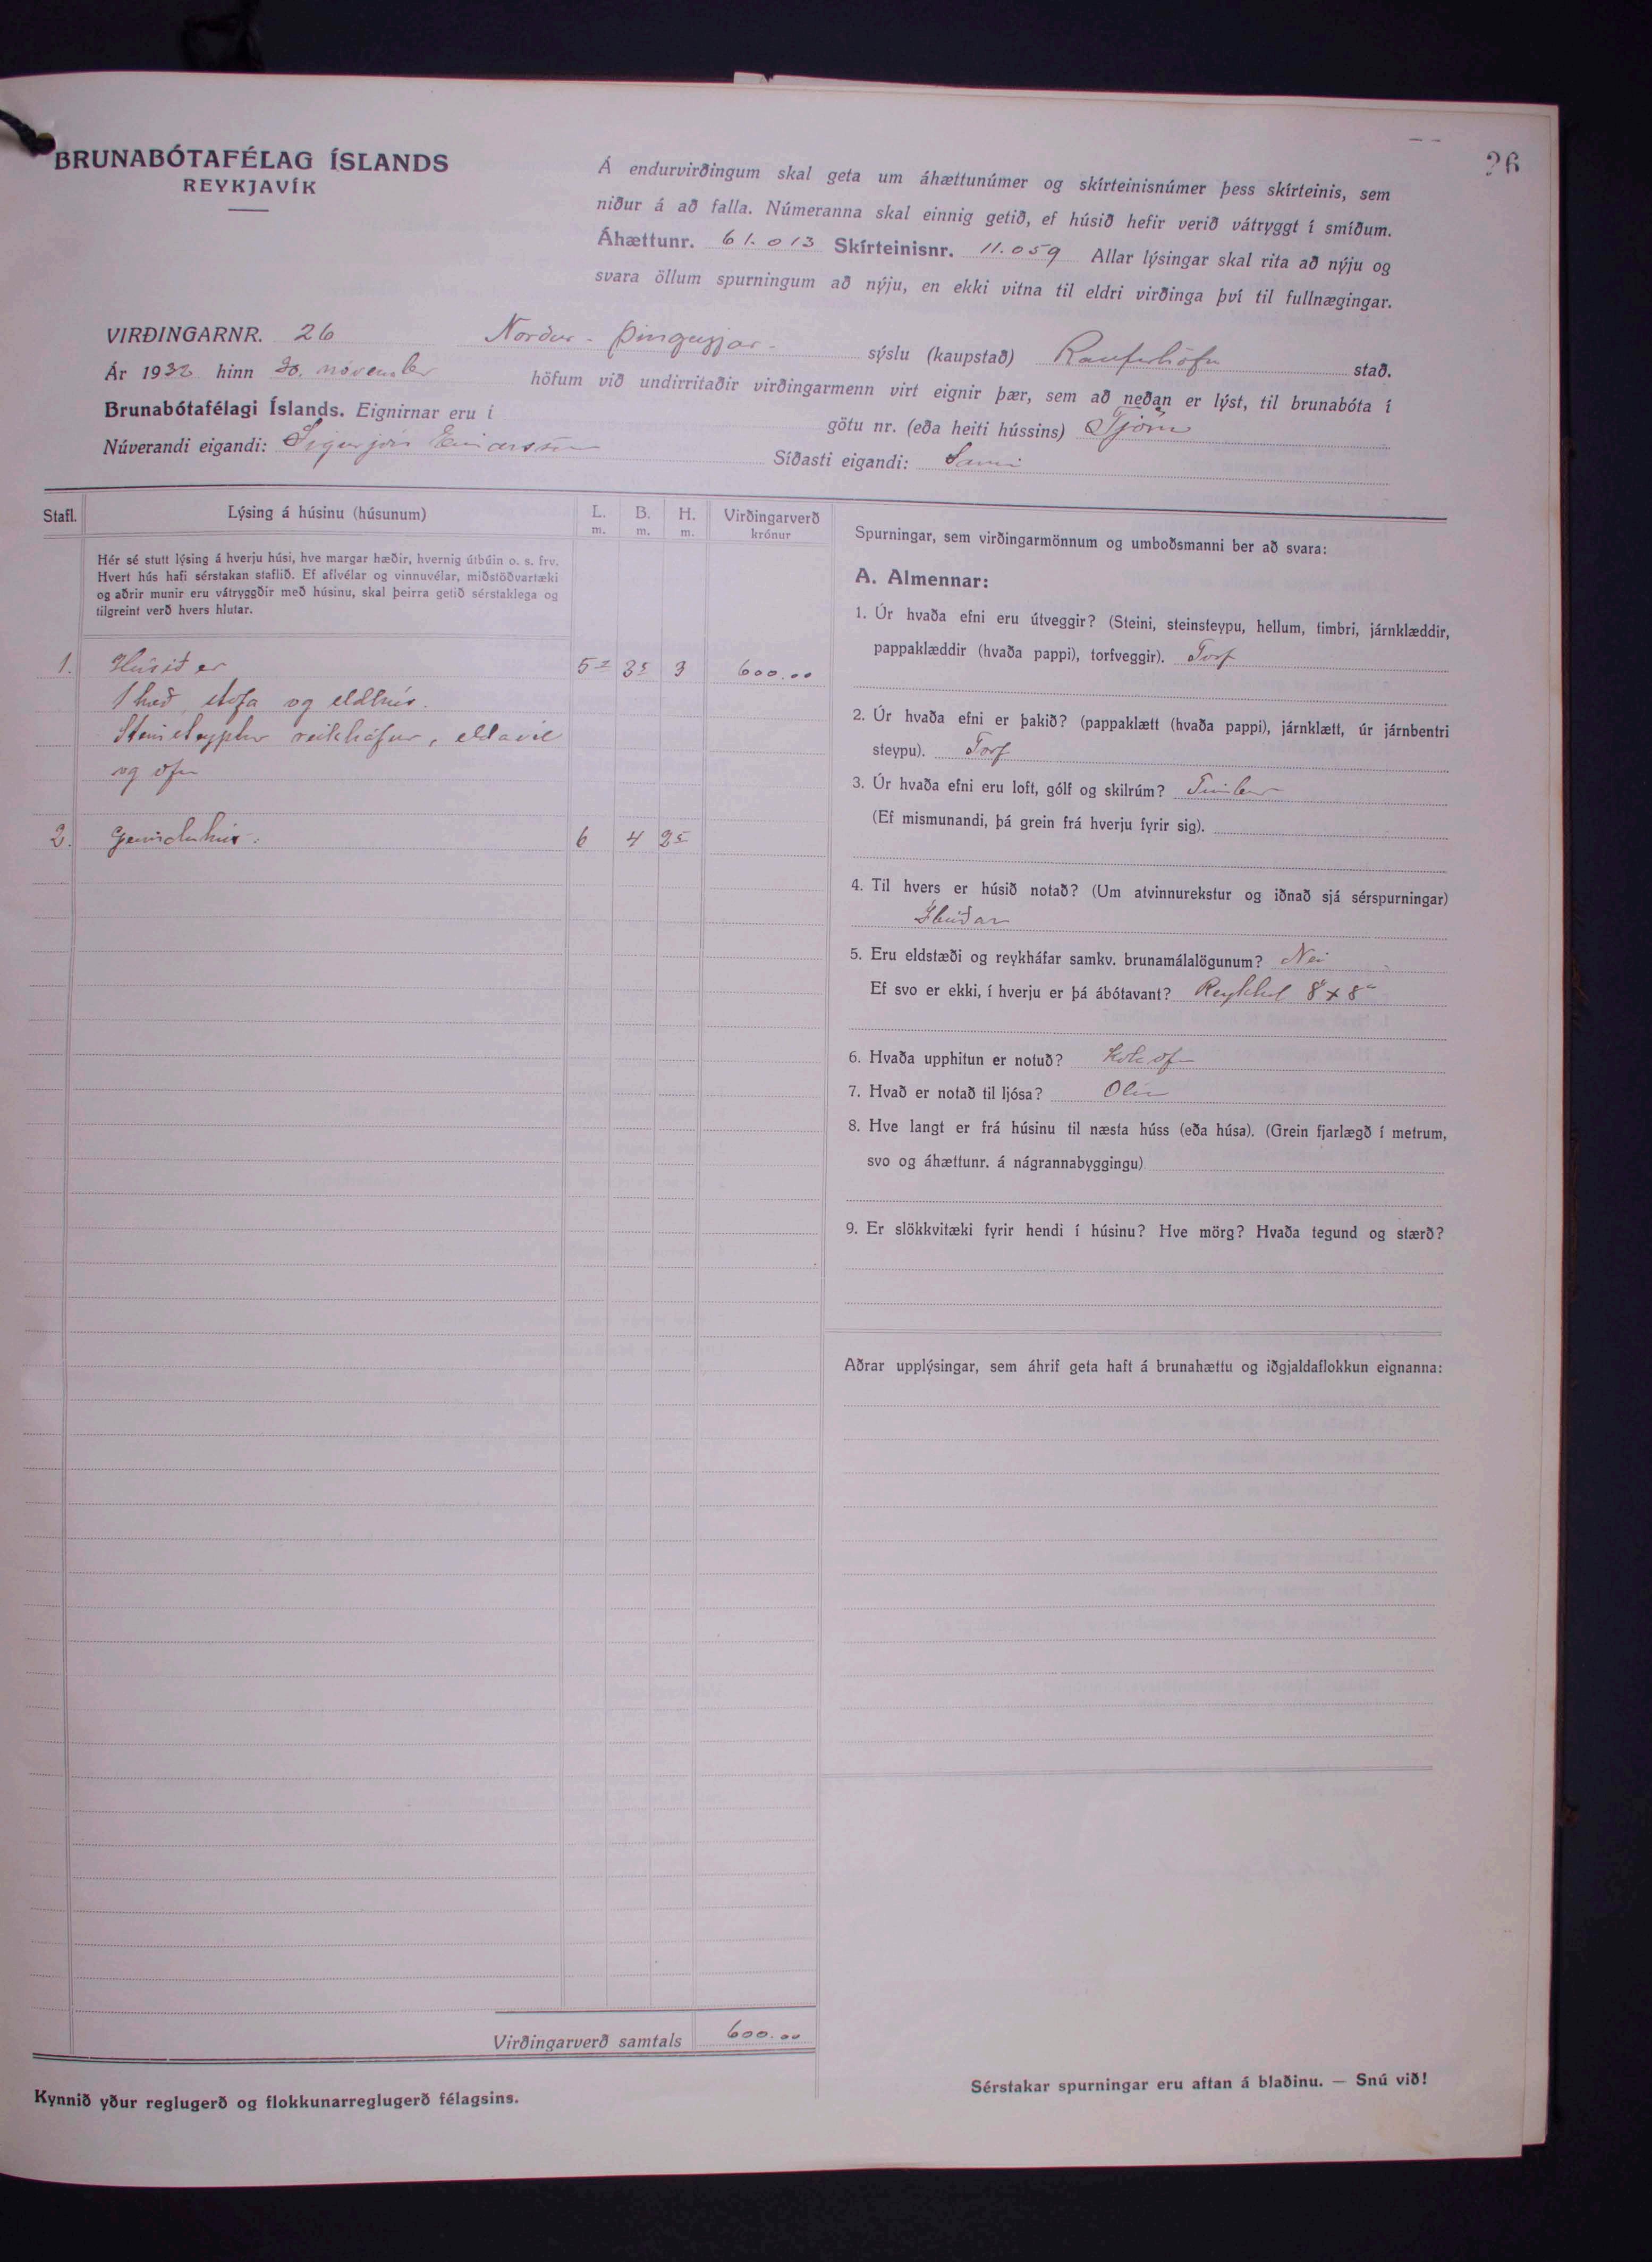 26
BRUNABÓTAFÉLAG ÍSLANDS
REYKJAVÍK
Á endurvirðingum skal geta um áhættunúmer og skírteinisnúmer þess skírteinis, sem
niður á að falla. Númeranna skal einnig getið, ef húsið hefir verið vátryggt í smíðum.
Áhættunr. 61.013 Skírteinisnr. 11.059 Allar lýsingar skal rita að nýju og
svara öllum spurningum að nýju, en ekki vitna til eldri virðinga því til fullnægingar.
VIRÐINGARNR. 26 Norður-Þingeyjar- sýslu (kaupstað) Raufarhöfn stað.
Ár 1932 hinn 30. november höfum við undirritaðir virðingarmenn virt eignir þær, sem að neðan er lýst, til brunabóta í
Brunabótafélagi Íslands. Eignirnar eru í götu nr. (eða heiti hússins) Tjörn
Núverandi eigandi: Sigurjón Einarsson Síðasti eigandi: Sami
Stafl. Lýsing á húsinu (húsunum) L. m. B. m. H. m. Virðingarverð krónur
Hér sé stutt lýsing á hverju húsi, hve margar hæðir, hvernig útbúin o. s. frv.
Hvert hús hafi sérstakan staflið. Ef aflvélar og vinnuvélar, miðstöðvartæki
og aðrir munir eru vátryggðir með húsinu, skal þeirra getið sérstaklega og
tilgreint verð hvers hlutar.
1. Húsið er 5 2 3 5 3 600.00
1 hæð, stofa og eldhús.
Steinsteyptur reikháfur, eldavél
og ofn
2. Geymsluhús. 6 4 2 5
Virðingarverð samtals 600.00
Kynnið yður reglugerð og flokkunarreglugerð félagsins.
Spurningar, sem virðingarmönnum og umboðsmanni ber að svara:
A. Almennar:
1. Úr hvaða efni eru útveggir? (Steini, steinsteypu, hellum, timbri, járnklæddir,
pappaklæddir (hvaða pappi), torfveggir). Torf
2. Úr hvaða efni er þakið? (pappaklætt (hvaða pappi), járnklætt, úr járnbentri
steypu). Torf
3. Úr hvaða efni eru loft, gólf og skilrúm? Timbur
(Ef mismunandi, þá grein frá hverju fyrir sig).
4. Til hvers er húsið notað? (Um atvinnurekstur og iðnað sjá sérspurningar)
Íbúðar
5. Eru eldstæði og reykháfar samkv. brunamálalögunum? Nei
Ef svo er ekki, í hverju er þá ábótavant? 8" x 8"
6. Hvaða upphitun er notuð? Kola ofn
7. Hvað er notað til ljósa? Olía
8. Hve langt er frá húsinu til næsta húss (eða húsa). (Grein fjarlægð í metrum,
svo og áhættunr. á nágrannabyggingu)
9. Er slökkvitæki fyrir hendi í húsinu? Hve mörg? Hvaða tegund og stærð?
Aðrar upplýsingar, sem áhrif geta haft á brunahættu og iðgjaldaflokkun eignanna:
Sérstakar spurningar eru aftan á blaðinu. — Snú við!